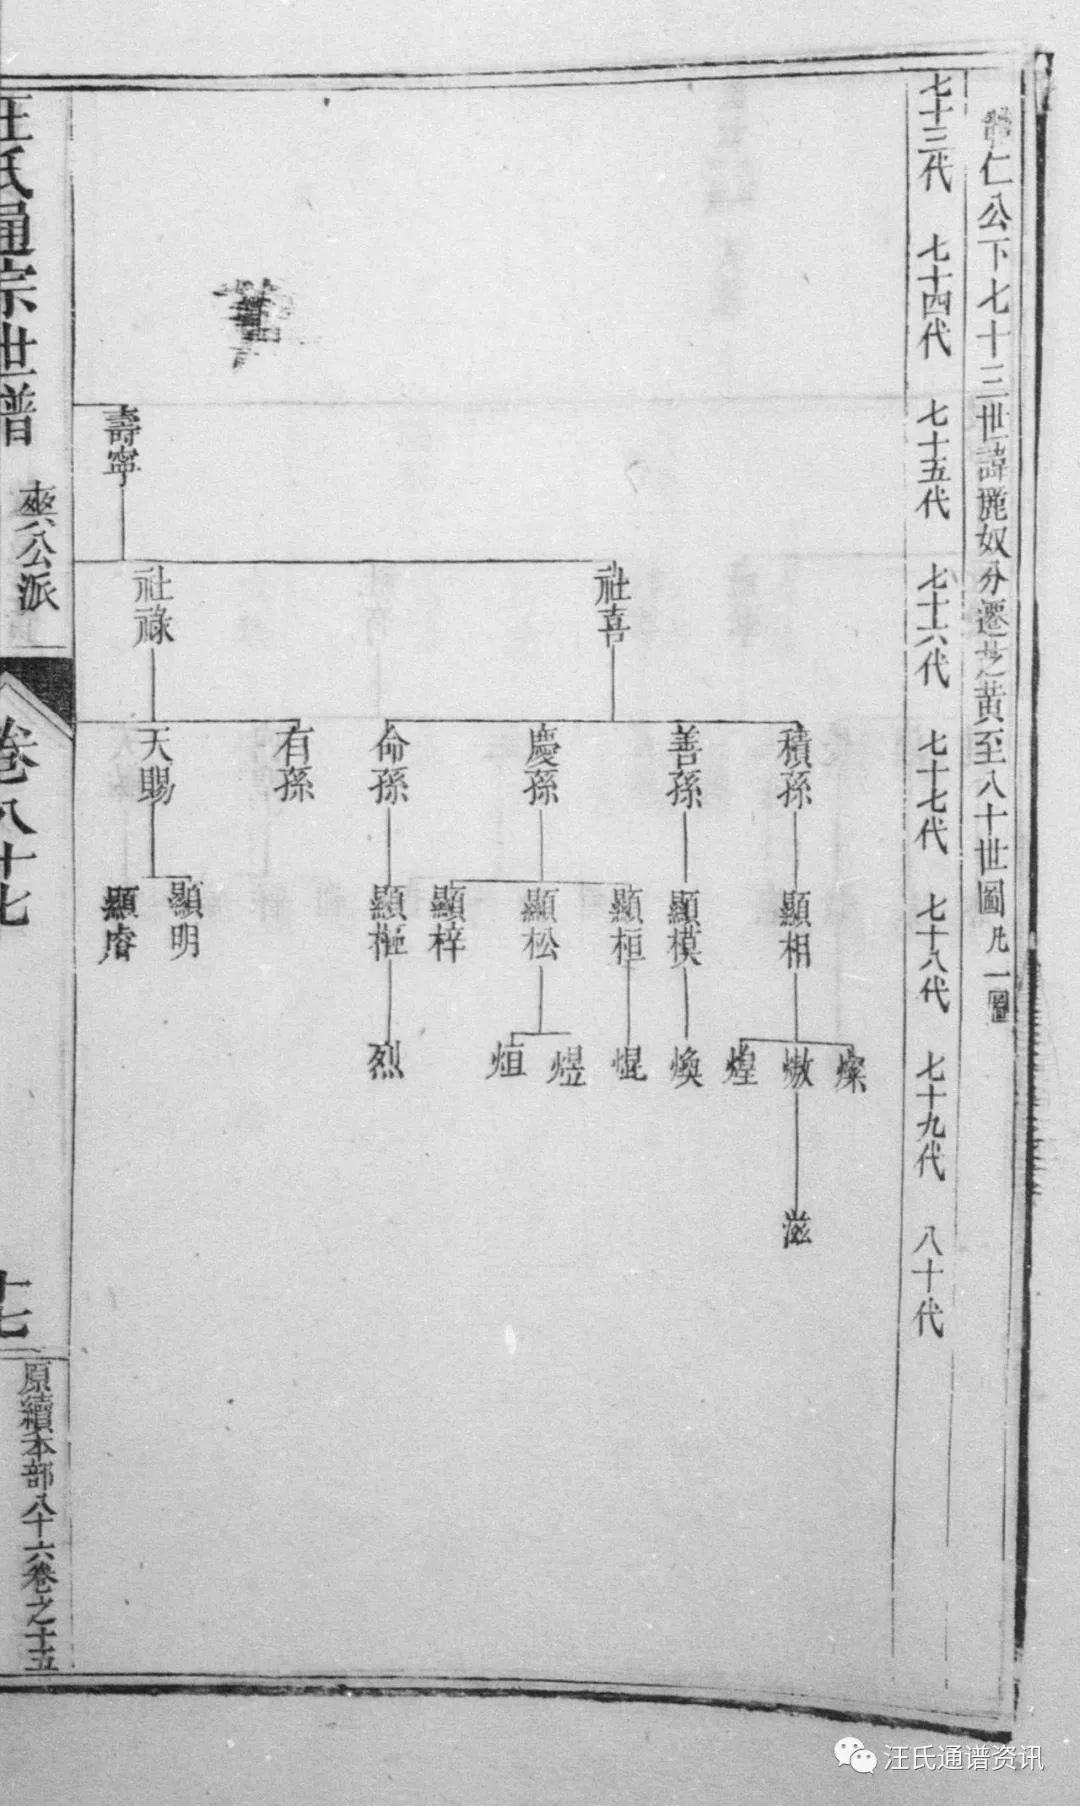 仁公下七十三世諱麗奴分遷芝黄至八十世圖凡一圖
七十三代 七十四代 七十五代 七十六代 七十七代 七十八代 七十九代 八十代
壽寧
社喜 社祿
積孫 善孫 慶孫 命孫 有孫 天賜
顯相 顯模 顯桓 顯松 顯梓 顯樞 顯明 顯睿
燦 燉 煌 煥 焜 煜 烜 烈
滋
汪氏通宗世譜 爽公派 卷八十七 十七 原續本部八十六卷之十五
汪氏通谱资讯